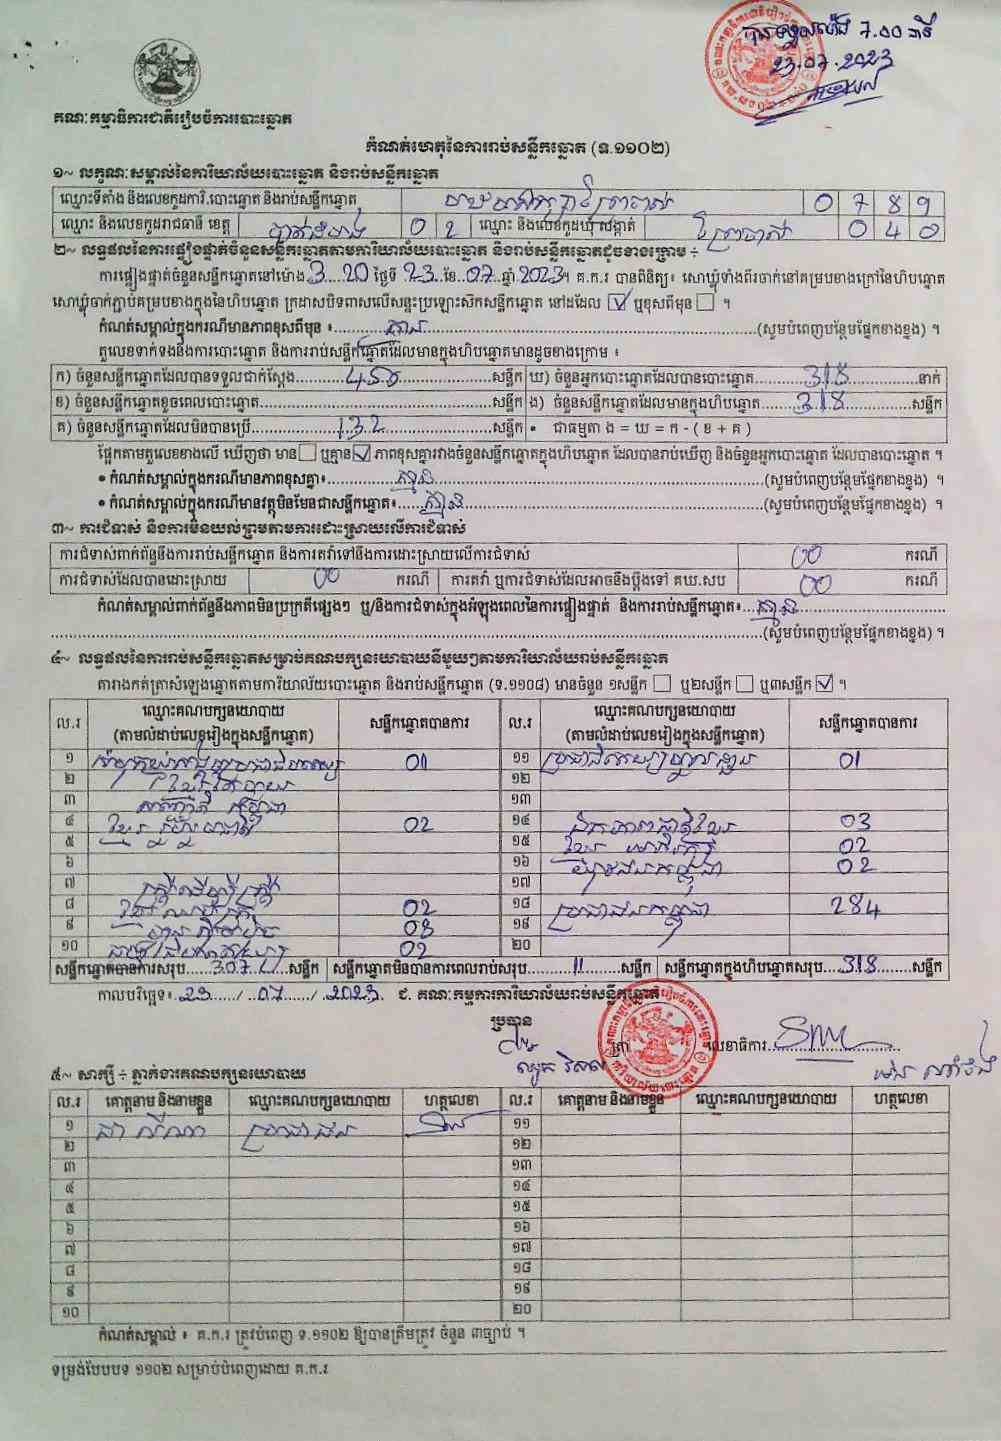 7.00 នាទី
23.07.2023
គណៈកម្មាធិការជាតិរៀបចំការបោះឆ្នោត
កំណត់ហេតុនៃការរាប់សន្លឹកឆ្នោត (ទ.១១០២)
១~ លក្ខណៈសម្គាល់នៃការិយាល័យបោះឆ្នោត និងរាប់សន្លឹកឆ្នោត
ឈ្មោះទីតាំង និងលេខកូដការិ.បោះឆ្នោត និងរាប់សន្លឹកឆ្នោត 0 7 8 9
ឈ្មោះ និងលេខកូដរាជធានី ខេត្ត បាត់ដំបង 0 2 ឈ្មោះ និងលេខកូដឃុំ សង្កាត់ 0 4 0
២~ លទ្ធផលនៃការផ្ទៀងផ្ទាត់ចំនួនសន្លឹកឆ្នោតតាមការិយាល័យបោះឆ្នោត និងរាប់សន្លឹកឆ្នោតដូចខាងក្រោម ៖
ការផ្ទៀងផ្ទាត់ចំនួនសន្លឹកឆ្នោតនៅម៉ោង 3.20 ថ្ងៃទី 23 ខែ 07 ឆ្នាំ 2023។ គ.ក.រ បានពិនិត្យ៖ សោឃ្លុំទាំងពីរចាក់នៅគម្របខាងក្រៅនៃហិបឆ្នោត
សោឃ្លុំចាក់ភ្ជាប់គម្របខាងក្នុងនៃហិបឆ្នោត ក្រដាសបិទពាសលើសន្ទះប្រឡោះសិកសន្លឹកឆ្នោត នៅដដែល ☑ ឬខុសពីមុន ☐ ។
កំណត់សម្គាល់ក្នុងករណីមានភាពខុសពីមុន ៖ គ្មាន (សូមបំពេញបន្ថែមផ្នែកខាងខ្នង) ។
តួលេខទាក់ទងនឹងការបោះឆ្នោត និងការរាប់សន្លឹកឆ្នោតដែលមានក្នុងហិបឆ្នោតមានដូចខាងក្រោម ៖
ក) ចំនួនសន្លឹកឆ្នោតដែលបានទទួលជាក់ស្តែង 450 សន្លឹក ឃ) ចំនួនអ្នកបោះឆ្នោតដែលបានបោះឆ្នោត 318 នាក់
ខ) ចំនួនសន្លឹកឆ្នោតខូចពេលបោះឆ្នោត សន្លឹក ង) ចំនួនសន្លឹកឆ្នោតដែលមានក្នុងហិបឆ្នោត 318 សន្លឹក
គ) ចំនួនសន្លឹកឆ្នោតដែលមិនបានប្រើ 132 សន្លឹក • ជាធម្មតា ង = ឃ = ក - ( ខ + គ )
ផ្អែកតាមតួលេខខាងលើ ឃើញថា មាន ☐ ឬគ្មាន ☑ ភាពខុសគ្នារវាងចំនួនសន្លឹកឆ្នោតក្នុងហិបឆ្នោត ដែលបានរាប់ឃើញ និងចំនួនអ្នកបោះឆ្នោត ដែលបានបោះឆ្នោត ។
• កំណត់សម្គាល់ក្នុងករណីមានភាពខុសគ្នា៖ គ្មាន (សូមបំពេញបន្ថែមផ្នែកខាងខ្នង) ។
• កំណត់សម្គាល់ក្នុងករណីមានវត្ថុមិនមែនជាសន្លឹកឆ្នោត៖ គ្មាន (សូមបំពេញបន្ថែមផ្នែកខាងខ្នង) ។
៣~ ការជំទាស់ និងការមិនយល់ព្រមតាមការដោះស្រាយលើការជំទាស់
ការជំទាស់ពាក់ព័ន្ធនឹងការរាប់សន្លឹកឆ្នោត និងការតវ៉ាទៅនឹងការដោះស្រាយលើការជំទាស់ 00 ករណី
ការជំទាស់ដែលបានដោះស្រាយ 00 ករណី ការតវ៉ា ឬការជំទាស់ដែលអាចនឹងប្តឹងទៅ គឃ.សប 00 ករណី
កំណត់សម្គាល់ពាក់ព័ន្ធនឹងភាពមិនប្រក្រតីផ្សេងៗ ឬ/និងការជំទាស់ក្នុងអំឡុងពេលនៃការផ្ទៀងផ្ទាត់ និងការរាប់សន្លឹកឆ្នោត៖ គ្មាន
(សូមបំពេញបន្ថែមផ្នែកខាងខ្នង) ។
៤~ លទ្ធផលនៃការរាប់សន្លឹកឆ្នោតសម្រាប់គណបក្សនយោបាយនីមួយៗតាមការិយាល័យរាប់សន្លឹកឆ្នោត
តារាងកត់ត្រាសំឡេងឆ្នោតតាមការិយាល័យបោះឆ្នោត និងរាប់សន្លឹកឆ្នោត (ទ.១១០៨) មានចំនួន ១សន្លឹក ☐ ឬ២សន្លឹក ☐ ឬ៣សន្លឹក ☑ ។
ល.រ ឈ្មោះគណបក្សនយោបាយ (តាមលំដាប់លេខរៀងក្នុងសន្លឹកឆ្នោត) សន្លឹកឆ្នោតបានការ ល.រ ឈ្មោះគណបក្សនយោបាយ (តាមលំដាប់លេខរៀងក្នុងសន្លឹកឆ្នោត) សន្លឹកឆ្នោតបានការ
១ 01 ១១ 01
២ ១២
៣ ១៣
៤ 02 ១៤ 03
៥ ១៥ 02
៦ ១៦ 02
៧ ១៧
៨ 02 ១៨ ប្រជាជនកម្ពុជា 284
៩ 08 ១៩
១០ 02 ២០
សន្លឹកឆ្នោតបានការសរុប 307 សន្លឹក សន្លឹកឆ្នោតមិនបានការពេលរាប់សរុប 11 សន្លឹក សន្លឹកឆ្នោតក្នុងហិបឆ្នោតសរុប 318 សន្លឹក
កាលបរិច្ឆេទ៖ 23 / 07 / 2023 ជ. គណៈកម្មការការិយាល័យរាប់សន្លឹកឆ្នោត
ប្រធាន
ត្រា លេខាធិការ
៥~ សាក្សី ៖ ភ្នាក់ងារគណបក្សនយោបាយ
ល.រ គោត្តនាម និងនាមខ្លួន ឈ្មោះគណបក្សនយោបាយ ហត្ថលេខា ល.រ គោត្តនាម និងនាមខ្លួន ឈ្មោះគណបក្សនយោបាយ ហត្ថលេខា
១ ប្រជាជន ១១
២ ១២
៣ ១៣
៤ ១៤
៥ ១៥
៦ ១៦
៧ ១៧
៨ ១៨
៩ ១៩
១០ ២០
កំណត់សម្គាល់ ៖ គ.ក.រ ត្រូវបំពេញ ទ.១១០២ ឱ្យបានត្រឹមត្រូវ ចំនួន ៣ច្បាប់ ។
ទម្រង់បែបបទ ១១០២ សម្រាប់បំពេញដោយ គ.ក.រ